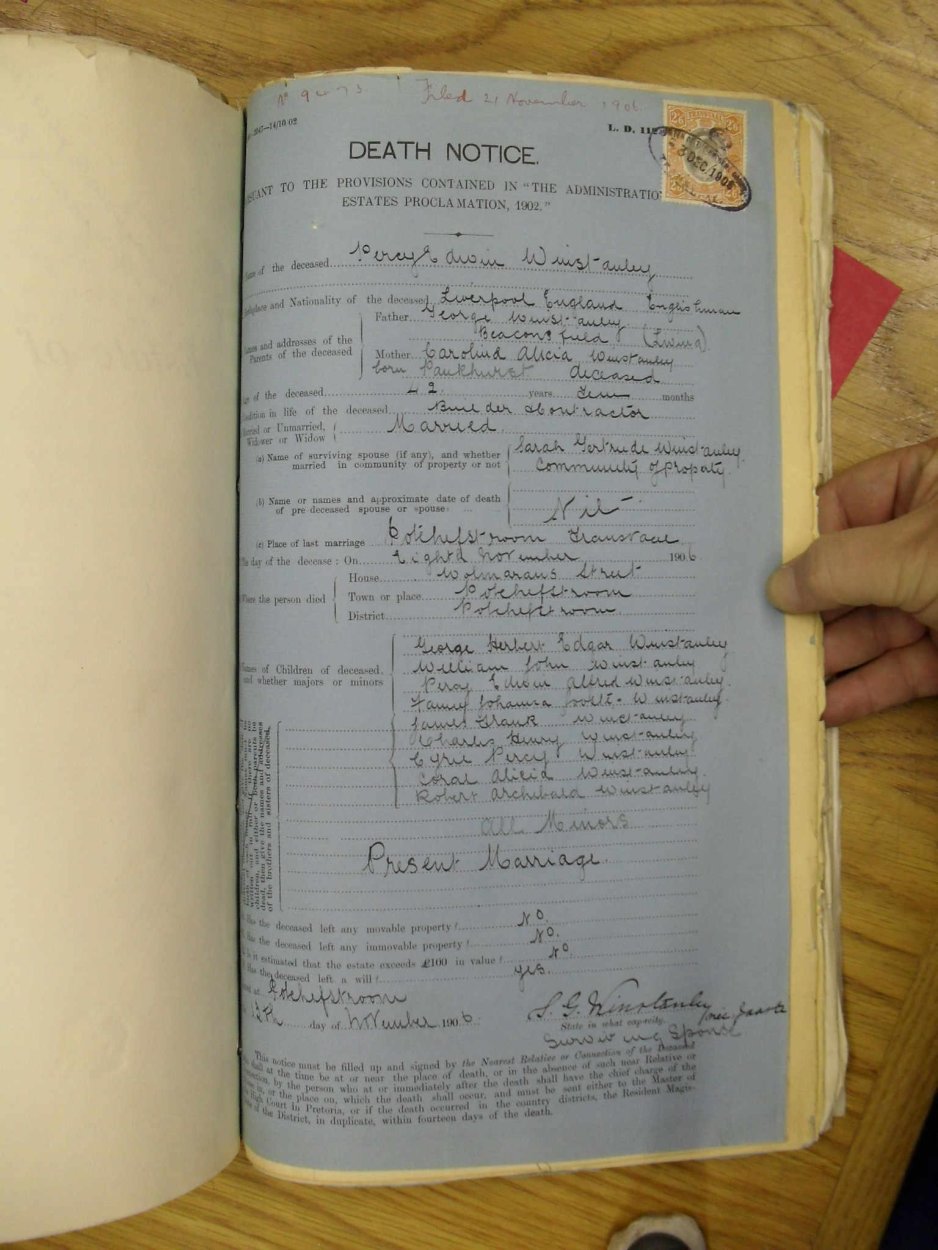 Filed 21 November 1906
2047—14/10 02
L. D. 112
DEATH NOTICE.
TO THE PROVISIONS CONTAINED IN "THE ADMINISTRATIO
ESTATES PROCLAMATION, 1902."
of the deceased Percy Edwin Winstanley
and Nationality of the deceased Liverpool England Englishman
Father George Winstanley
and addresses of the Beaconsfield
Parents of the deceased
Mother Alicia Winstanley
born deceased
of the deceased 42 years Ten months
in life of the deceased Builder & Contractor
or Unmarried, Married
Widower or Widow
(a) Name of surviving spouse (if any), and whether Sarah Gertrude Winstanley
married in community of property or not Community of Property
(b) Name or names and approximate date of death
of pre-deceased spouse or spouses Nil
(c) Place of last marriage Potchefstroom Transvaal
day of the decease: On November 1906
House Wolmarans Street
the person died Town or place Potchefstroom
District Potchefstroom
George Herbert Edgar Winstanley
of Children of deceased, William John Winstanley
and whether majors or minors Percy Edwin Alfred Winstanley
Johanna Winstanley
James Frank Winstanley
Charles Henry Winstanley
Percy Winstanley
Alicia Winstanley
Robert Archibald Winstanley
All Minors
Present Marriage
the deceased left any movable property? No.
the deceased left any immovable property? No.
estimated that the estate exceeds £100 in value? No.
the deceased left a will? yes.
at Potchefstroom
day of November 1906
S. G. Winstanley
State in what capacity.
Surviving Spouse
This notice must be filled up and signed by the Nearest Relative or Connection of the Deceased
shall at the time be at or near the place of death, or in the absence of such near Relative or
by the person who at or immediately after the death shall have the chief charge of the
in, or the place on, which the death shall occur, and must be sent either to the Master of
High Court in Pretoria, or if the death occurred in the country districts, the Resident Magis-
of the District, in duplicate, within fourteen days of the death.